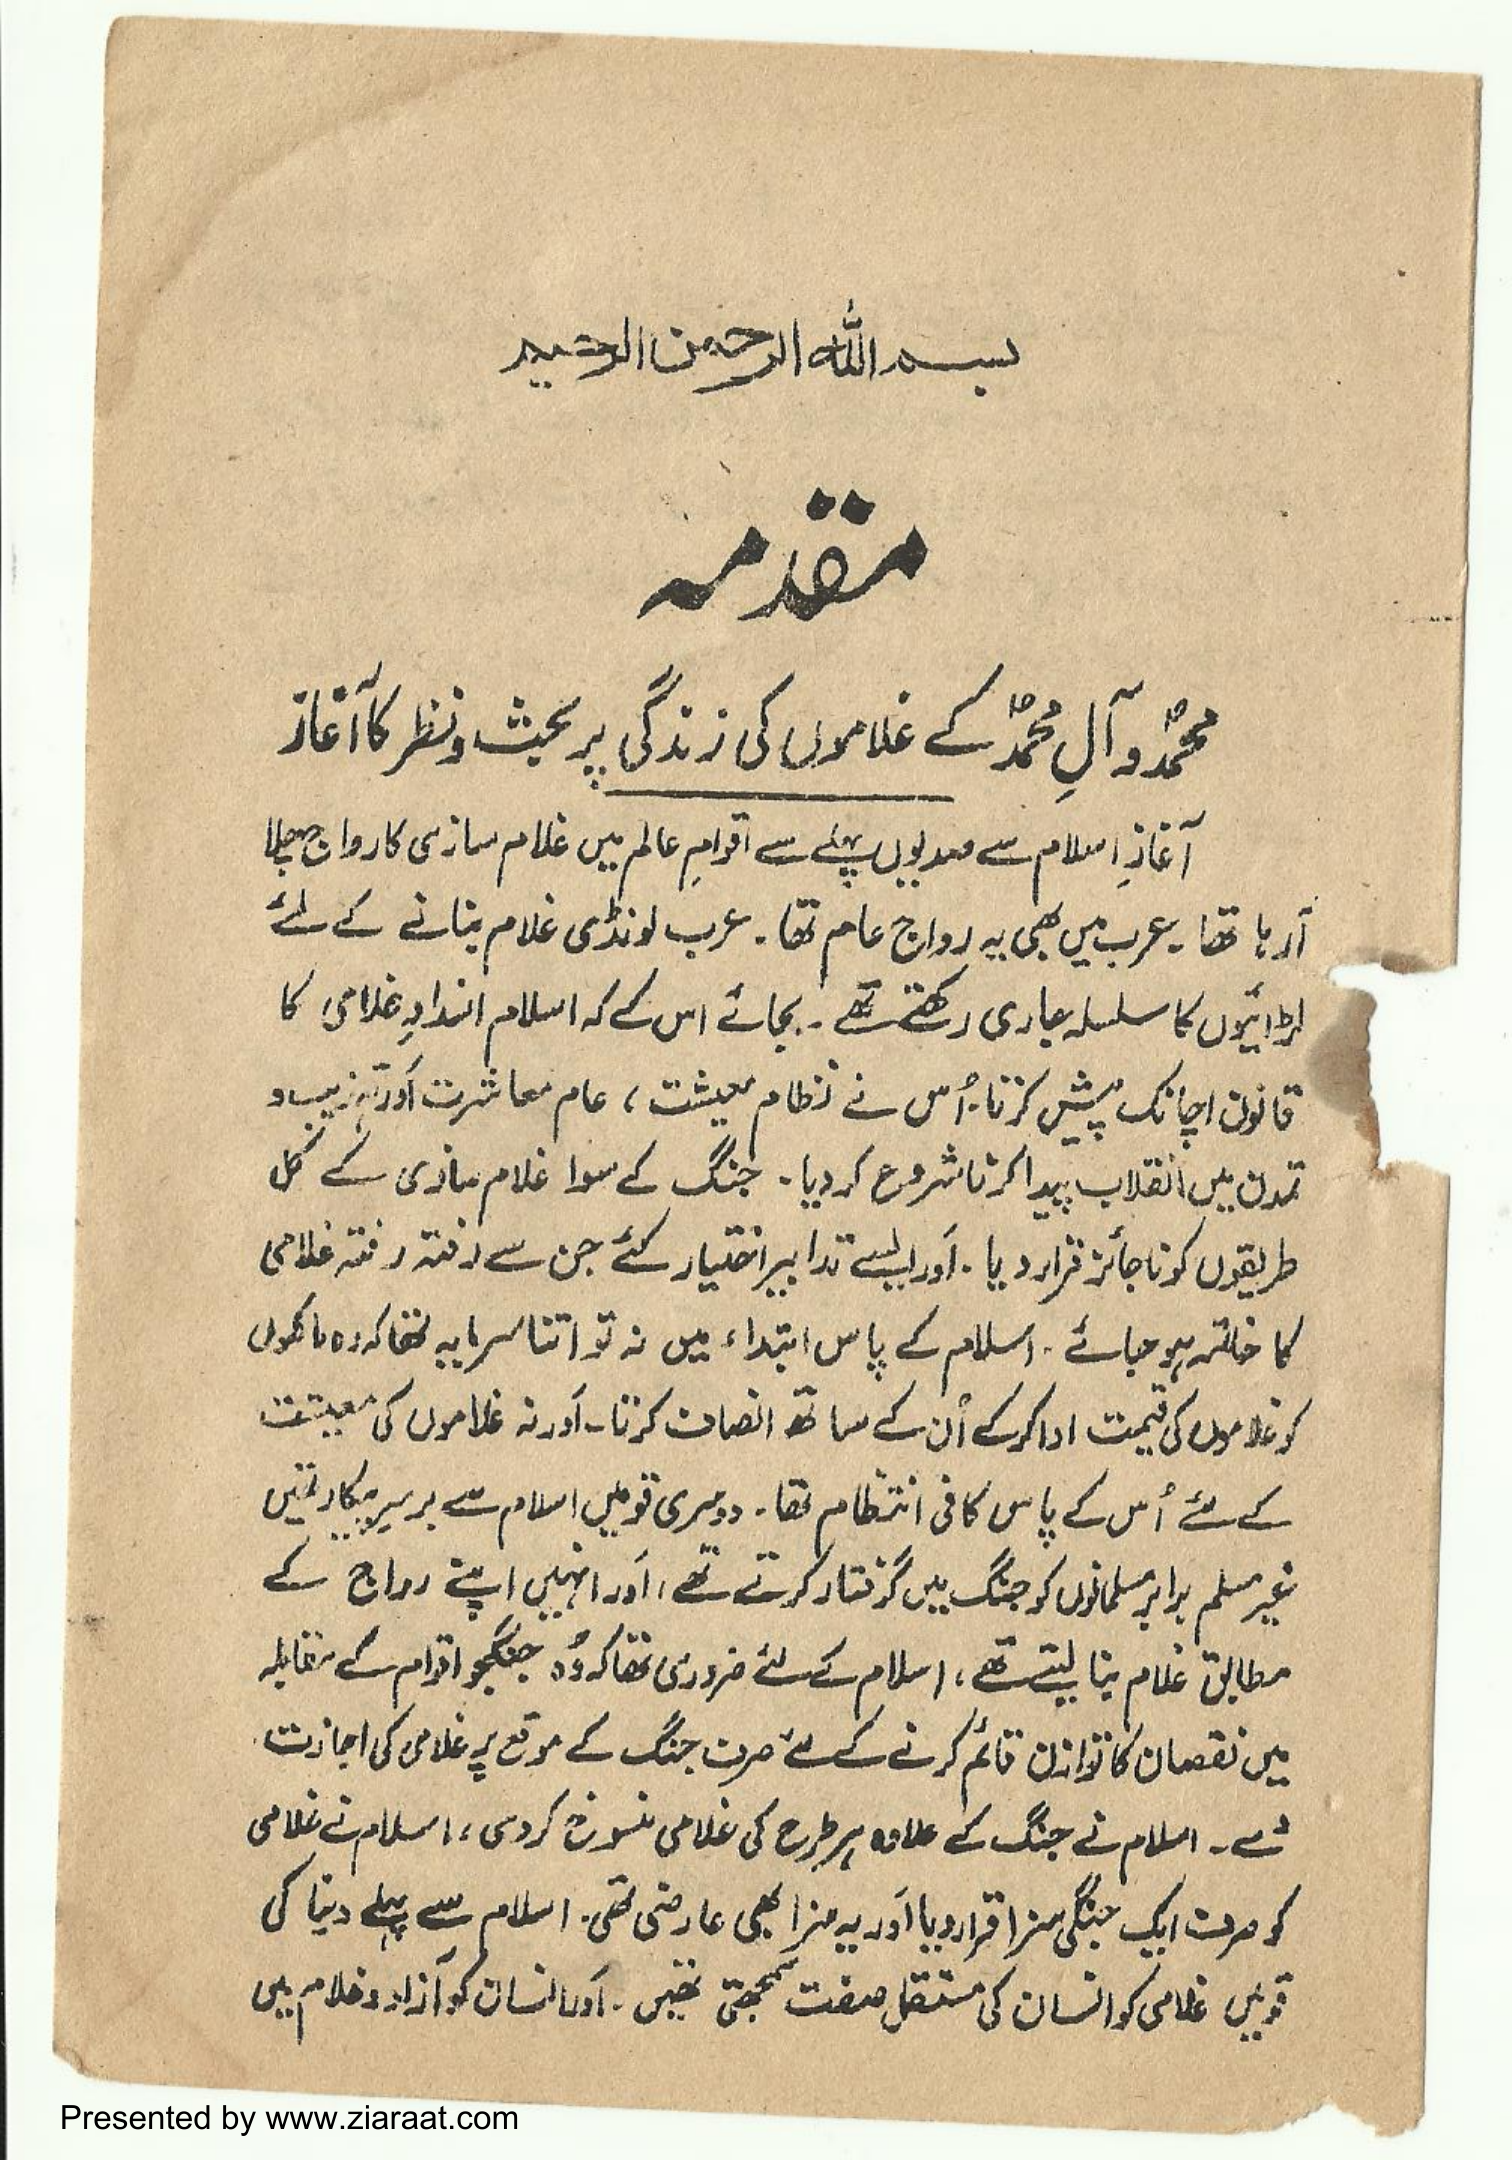 بسم اللہ الرحمن الرحیم
مقدمہ
محمدؐ و آلِ محمدؐ کے غلاموں کی زندگی پر بحث و نظر کا آغاز
آغازِ اسلام سے صدیوں پہلے سے اقوامِ عالم میں غلام سازی کا رواج چلا
آ رہا تھا۔ عرب میں بھی یہ رواج عام تھا۔ عرب لونڈی غلام بنانے کے لئے
لڑائیوں کا سلسلہ جاری رکھتے تھے۔ بجائے اس کے کہ اسلام انسدادِ غلامی کا
قانون اچانک پیش کرتا۔ اُس نے نظام معیشت، عام معاشرت اَور تہذیب و
تمدن میں انقلاب پیدا کرنا شروع کر دیا۔ جنگ کے سوا غلام سازی کے کل
طریقوں کو ناجائز قرار دیا۔ اَور ایسے تدابیر اختیار کئے جن سے رفتہ رفتہ غلامی
کا خاتمہ ہو جائے۔ اسلام کے پاس ابتداء میں نہ تو اتنا سرمایہ تھا کہ وہ مالکوں
کو غلاموں کی قیمت ادا کر کے اُن کے ساتھ انصاف کرتا۔ اَور نہ غلاموں کی معیشت
کے لئے اُس کے پاس کافی انتظام تھا۔ دوسری قومیں اسلام سے برسرِ پیکار تھیں
غیر مسلم برابر مسلمانوں کو جنگ میں گرفتار کرتے تھے، اَور انہیں اپنے رواج کے
مطابق غلام بنا لیتے تھے، اسلام کے لئے ضروری تھا کہ وُہ جنگجو اقوام کے مقابلہ
میں نقصان کا توازن قائم کرنے کے لئے صرف جنگ کے موقع پر غلامی کی اجازت
دے۔ اسلام نے جنگ کے علاوہ ہر طرح کی غلامی منسوخ کر دی، اسلام نے غلامی
کو صرف ایک جنگی سزا قرار دیا اَور یہ سزا بھی عارضی تھی۔ اسلام سے پہلے دنیا کی
قومیں غلامی کو انسان کی مستقل صفت سمجھتی تھیں۔ اَور انسان کو آزاد و غلام میں
Presented by www.ziaraat.com